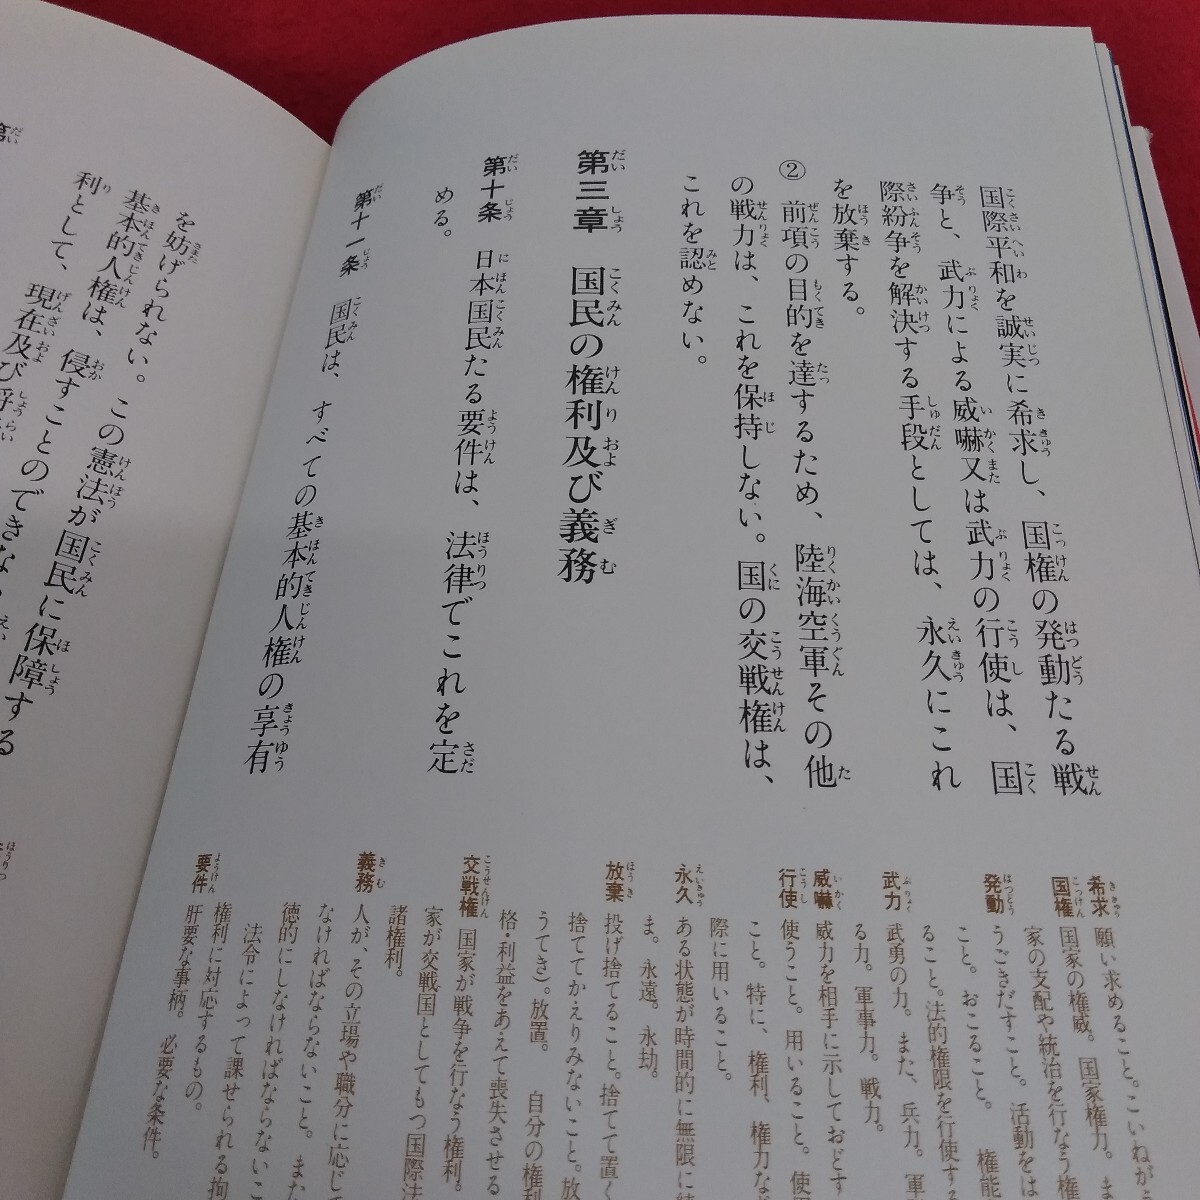 国際平和を誠実に希求し、国権の発動たる戦
争と、武力による威嚇又は武力の行使は、国
際紛争を解決する手段としては、永久にこれ
を放棄する。
② 前項の目的を達するため、陸海空軍その他
の戦力は、これを保持しない。国の交戦権は、
これを認めない。
第三章 国民の権利及び義務
第十条 日本国民たる要件は、法律でこれを定
める。
第十一条 国民は、すべての基本的人権の享有
を妨げられない。この憲法が国民に保障する
基本的人権は、侵すことのできない
利として、現在及び将
希求 願い求めること。こいねが
国権 国家の権威。国家権力。ま
家の支配や統治を行なう権
発動 うごきだすこと。活動をは
こと。おこること。 権能
ること。法的権限を行使す
武力 武勇の力。また、兵力。軍
る力。軍事力。戦力。
威嚇 威力を相手に示しておどす
行使 使うこと。用いること。使
こと。特に、権利、権力な
際に用いること。
永久 ある状態が時間的に無限に
ま。永遠。永劫。
放棄 投げ捨てること。捨てて置く
捨ててかえりみないこと。放
うてき)。放置。 自分の権利
格・利益をあえて喪失させる
交戦権 国家が戦争を行なう権利。
家が交戦国としてもつ国際法
諸権利。
義務 人が、その立場や職分に応じて
なければならないこと。また
徳的にしなければならないこ
法令によって課せられる拘
権利に対応するもの。
要件 肝要な事柄。 必要な条件。